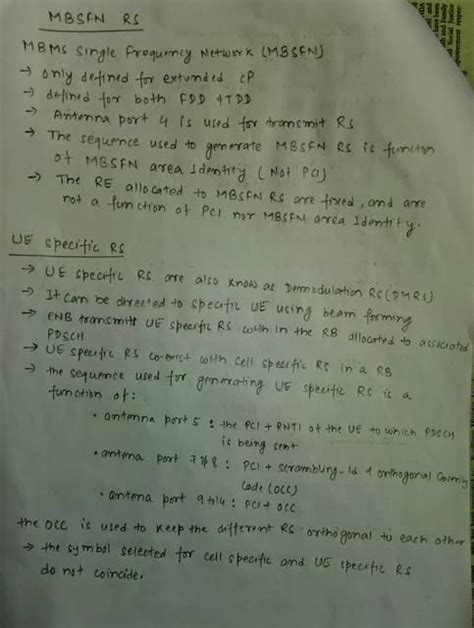 MBSFN RS
MBMS Single Frequency Network (MBSFN)
→ only defined for extended CP
→ defined for both FDD & TDD
→ Antenna port 4 is used for transmit RS
→ The sequence used to generate MBSFN RS is function
of MBSFN area Identity (Not PCI)
→ The RE allocated to MBSFN RS are fixed, and are
not a function of PCI nor MBSFN area Identity.
UE Specific RS
→ UE specific RS are also know as Demodulation RS (DMRS)
→ It can be directed to specific UE using beam forming
→ ENB transmitt UE specific RS with in the RB allocated to associated
PDSCH
→ UE specific RS co-exist with cell specific RS in a RB
→ the sequence used for generating UE specific RS is a
function of:
• antenna port 5 : the PCI + RNTI of the UE to which PDSCH
is being sent
• antena port 7&8 : PCI + scrambling-Id & orthogonal
Code (OCC)
• antena port 9 to 14 : PCI + OCC
the OCC is used to keep the different RS orthogonal to each other
→ the symbol selected for cell specific and UE specific RS
do not coincide.
and Family
Social Justice